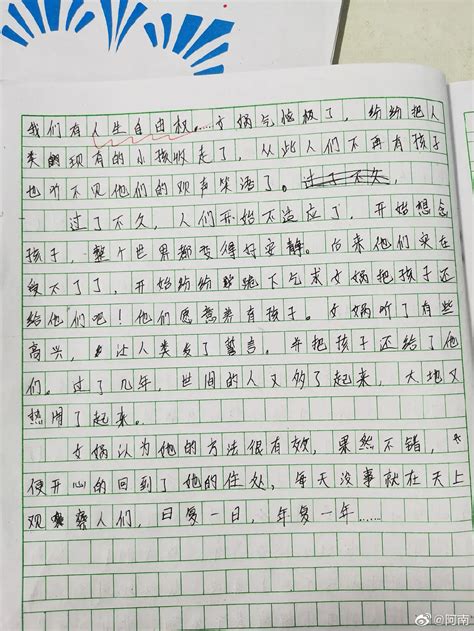 我们有人生自由权……女娲气恼极了，纷纷把人
类的现有的小孩收走了，从此人们不再有孩子
也听不见他们的欢声笑语了。过了不久，
过了不久，人们开始不适应了，开始想念
孩子，整个世界都变得好安静。后来他们实在
受不了了，开始纷纷跪下乞求女娲把孩子还
给他们吧！他们愿意养有孩子。女娲听了有些
高兴，让人类发了誓言。并把孩子还给了他
们。过了几年，世间的人又多了起来，大地又
热闹了起来。
女娲认为她的方法很有效，果然不错，
便开心的回到了她的住处，每天没事就在天上
观察人们，日复一日，年复一年……
@阿南